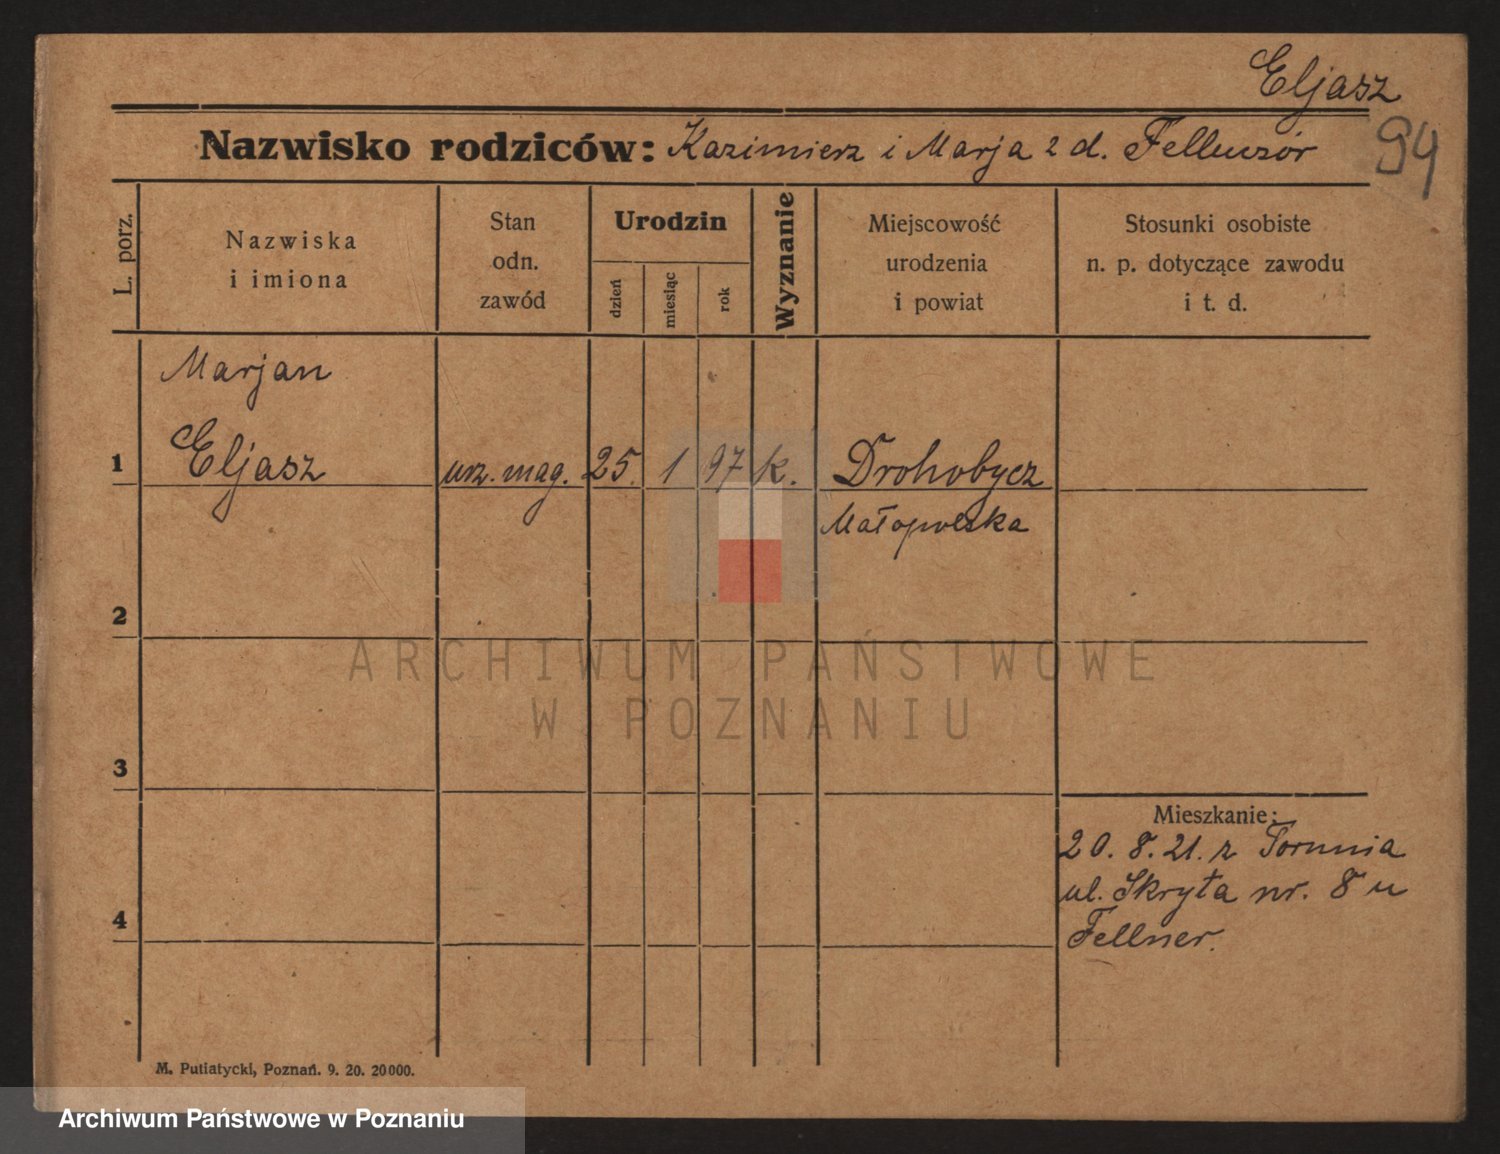 Eljasz
94
Nazwisko rodziców: Kazimierz i Marja z d.
L. porz.
Nazwiska i imiona
Stan odn. zawód
Urodzin
dzień
miesiąc
rok
Wyznanie
Miejscowość urodzenia i powiat
Stosunki osobiste n. p. dotyczące zawodu i t. d.
Marjan
1 Eljasz urz. mag. 25. 1 97 k. Drohobycz
Małopolska
2
ARCHIWUM PAŃSTWOWE
W POZNANIU
3
Mieszkanie:
20. 8. 21. z Torunia
ul. Skryta nr. 8 u
4
Fellner.
M. Putiatycki, Poznań. 9. 20. 20000.
Archiwum Państwowe w Poznaniu